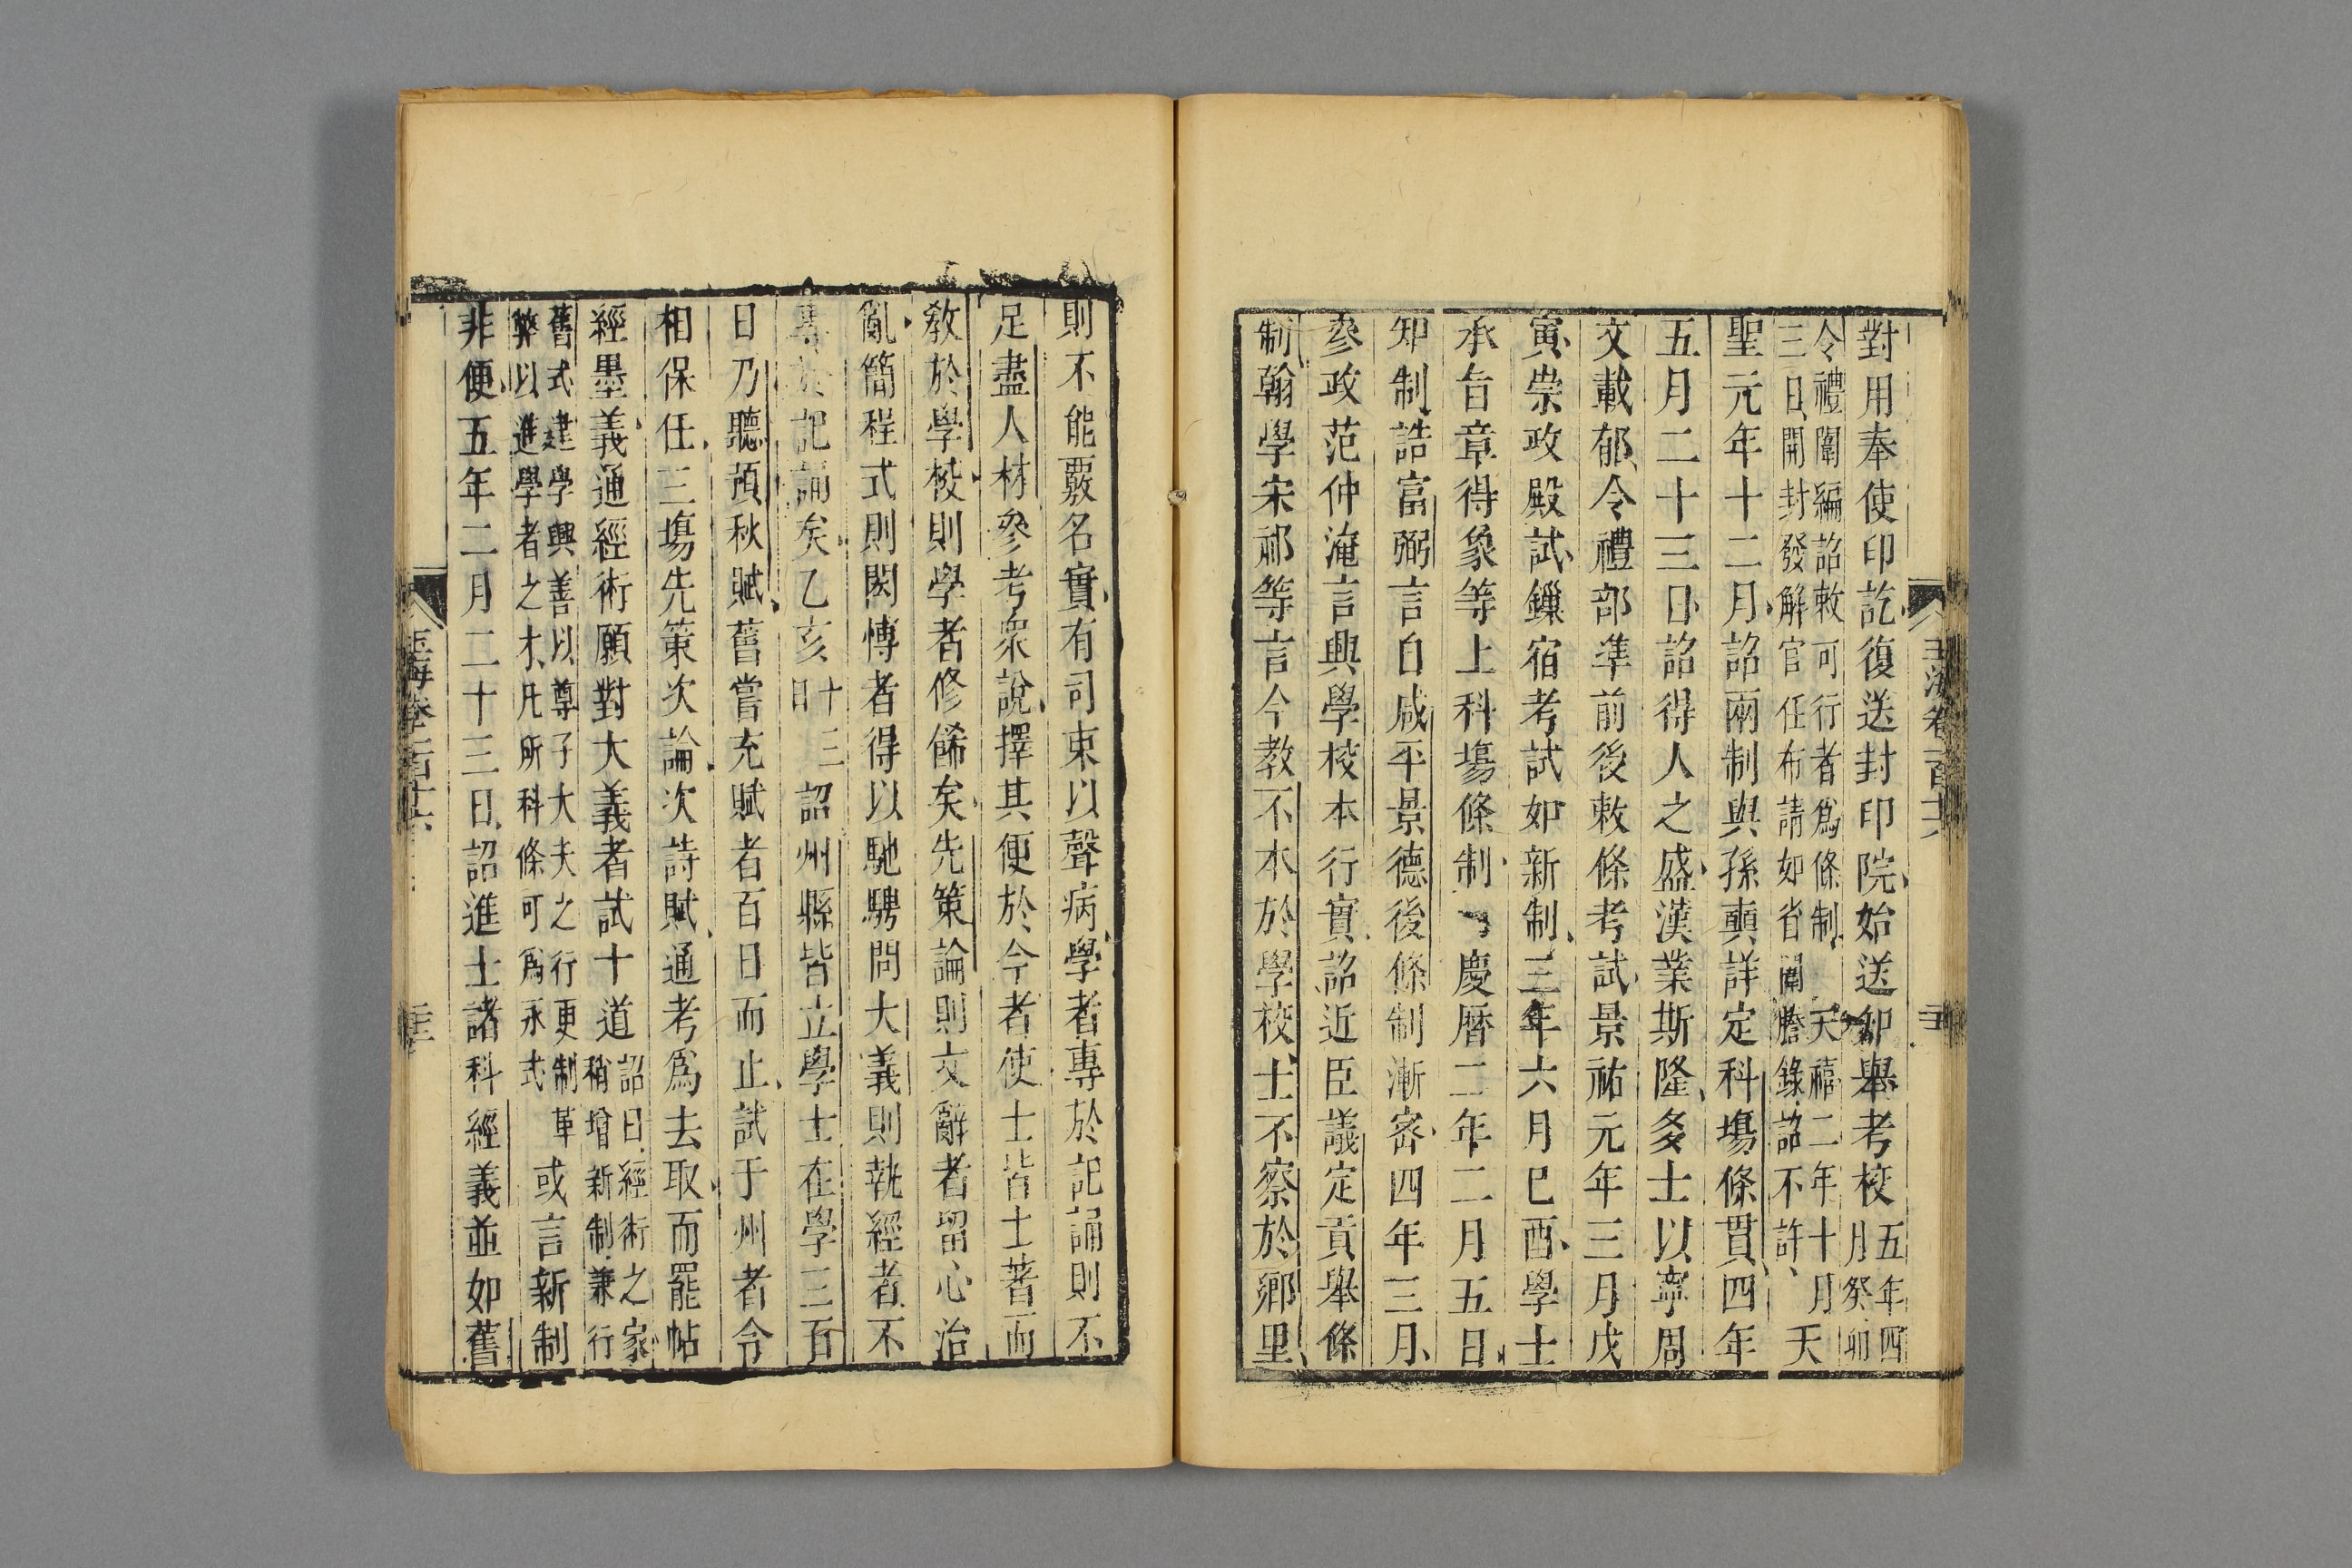 玉海卷一百十六
對用奉使印訖復送封印院始送知舉考校五年四
月癸卯
令禮闈編詔敕可行者爲條制天禧二年十月
三日開封發解官任布請如省闈謄錄詔不許天
聖元年十二月詔兩制與孫奭詳定科塲條貫四年
五月二十三日詔得人之盛漢業斯隆多士以寧周
文載郁令禮部準前後敕條考試景祐元年三月戊
寅崇政殿試鏁宿考試如新制三年六月巳酉學士
承旨章得象等上科塲條制慶曆二年二月五日
知制誥富弼言自咸平景德後條制漸密四年三月
參政范仲淹言興學校本行實詔近臣議定貢舉條
制翰學宋祁等言今教不本於學校士不察於鄉里
則不能覈名實有司束以聲病學者專於記誦則不
足盡人材參考衆說擇其便於今者使士皆土著而
敎於學校則學者修餙矣先策論則文辭者留心治
亂簡程式則閎愽者得以馳騁問大義則執經者不
專於記誦矣乙亥十三日詔州縣皆立學士在學三百
日乃聽預秋賦舊嘗充賦者百日而止試于州者令
相保任三塲先策次論次詩賦通考爲去取而罷帖
經墨義通經術願對大義者試十道詔曰經術之家
稍增新制兼行
舊式建學興善以尊子大夫之行更制革
弊以進學者之才凡所科條可爲永式或言新制
非便五年二月二十三日詔進士諸科經義並如舊
玉海卷一百十六